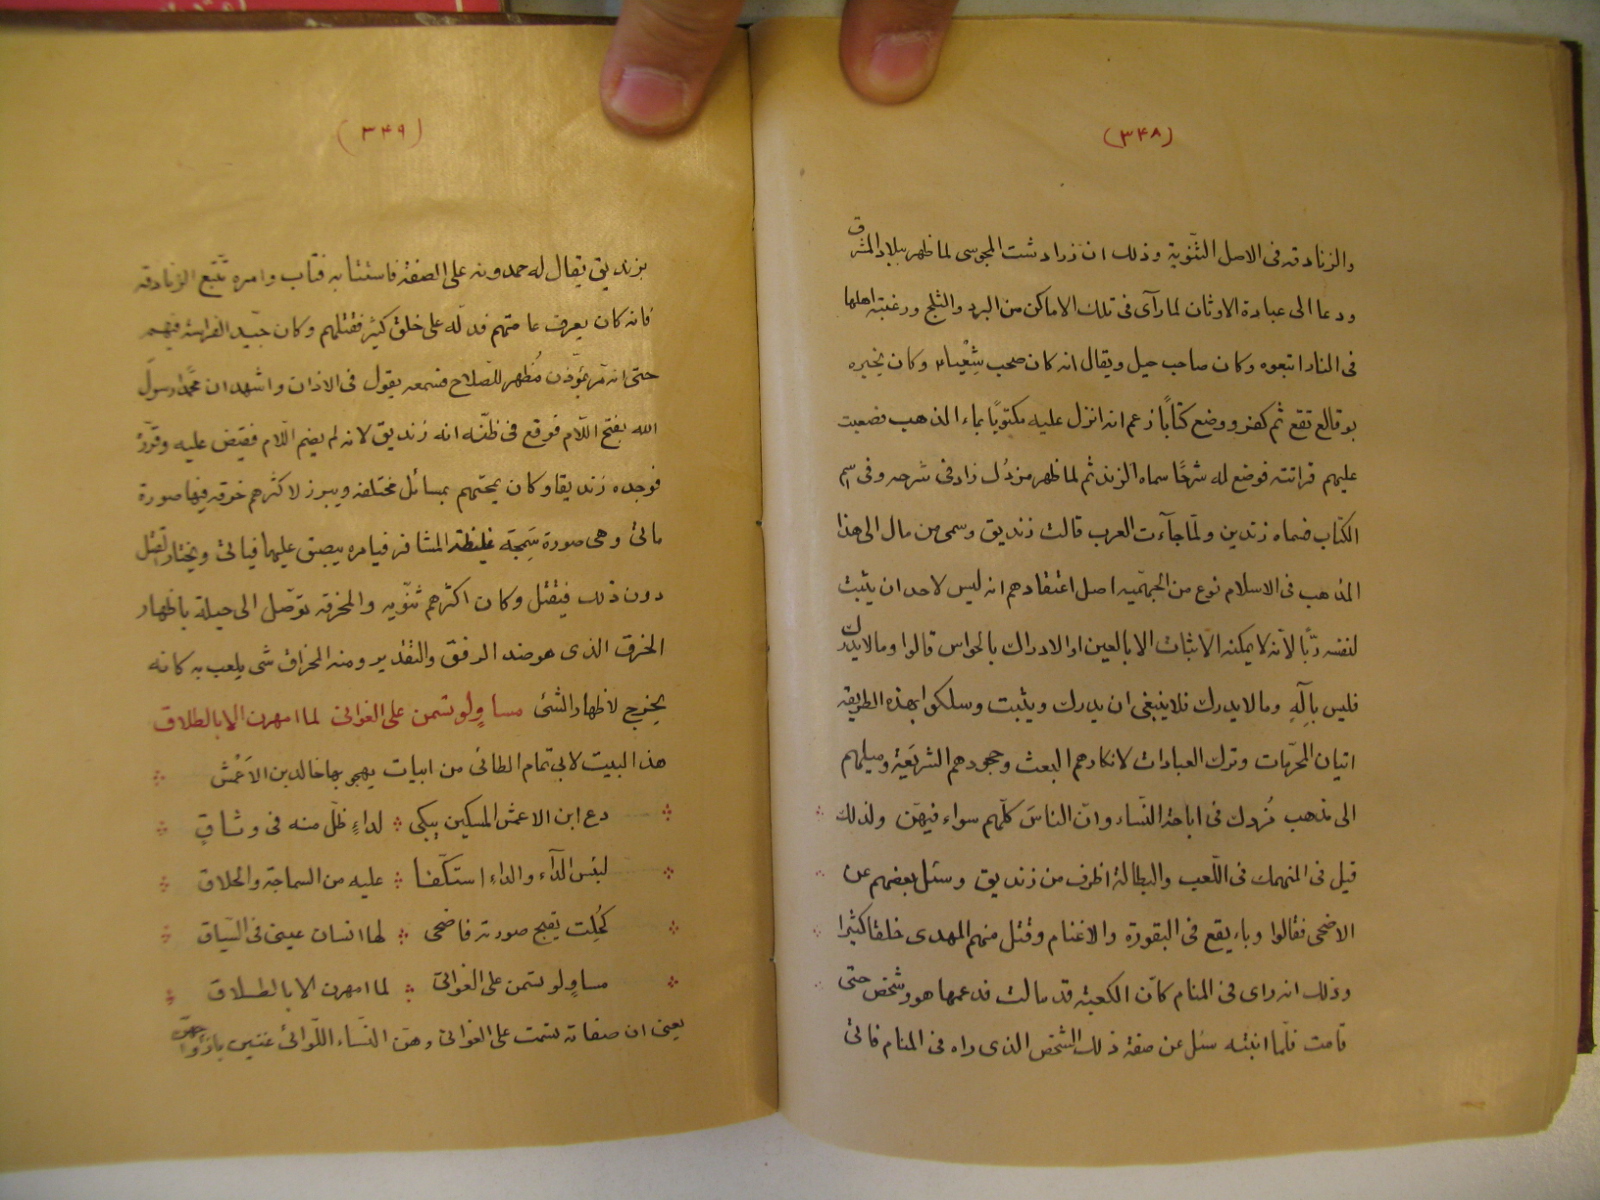 (٣۴٨)
والزنادقه فى الاصل الثّنويّة وذلك انّ زرادشت المجوسى لما ظهر ببلاد المشرق
ودعا الى عبادة الاوثان لما رآى فى تلك الاماكن من البرد والثلج ورغبته اهلها
فى النار اتبعوه وكان صاحب حيل ويقال انه كان صحب شِعْياء وكان يخبره
بوقائع تقع ثم كفر ووضع كتابًا زعم انه انزل عليه مكتوبًا بماء الذهب فصعبت
عليهم قرائته فوضع له شرحًا سماه الزند ثم لما ظهر مزدك زاد فى شرحه وفى اسم
الكتاب فسماه زندين ولمّا جآءت العرب قالت زنديق وسمى من مال الى هذا
المذهب فى الاسلام نوع من الجهميّه اصل اعتقادهم انه ليس لاحد ان يثبت
لنفسه ربًّا لانّه لا يمكنه الاثبات الا بالعين او الادراك بالحواس قالوا وما لا يدرك
فليس بآلِهٍ وما لا يدرك فلا ينبغى ان يدرك ويثبت وسلكوا بهذه الطريقه
اتيان المحرّمات وترك العبادات لانكارهم البعث وجحودهم الشريَعة وميلهم
الى مذهب مُزدك فى اباحة النّساء وانّ الناسَ كلّهم سواء فيهنّ ولذلك
قيل فى المنهمك فى اللّعب والبطالة اظرف من زنديق وسئل بعضهم عن
الاضحى فقالوا وباء يقع فى البقورة والاغنام وقتل منهم المهدى خلقا كثيرا
وذلك انه راى فى المنام كانّ الكعبة قد مالت فدعمها هو وشخص حتى
قامت فلمّا انتبه سئل عن صفة ذلك الشخص الذى راه فى المنام فاتى
(٣۴٩)
بزنديق يقال له حمدويه على الصفة فاستتابه فتاب وامره تتبّع الزنادقه
فانه كان يعرف عامتهم فدلّه على خلق كثير فقتلهم وكان جيّد الفراسة فيهم
حتى انه مرّ بمؤذن مُظهر للصلاح فسمعه يقول فى الاذان واشهد ان محمّدا رسولَ
الله بفتح اللّام فوقع فى ظنّه انه زنديق لانه لم يضم اللّام فقبض عليه وقرّرَ
فوجده زنديقا وكان يمتحنهم بمسائل مختلفه ويبرز لاكثرهم خرقه فيها صورة
مانى وهى صورة سَمِجَه غليظة المشافر فيامره يبصق عليها فيابى ويختار القتل
دون ذلك فيقتل وكان اكثرهم ثنّويه والمخرقه توصّل الى حيلة باظهار
الخرق الذى هو ضد الرفق والتقدير ومنه المخراق شى يلعب به كانه
يخرج لاظهار الشئ مساوٍ لو قسمن على الغوانى لما امهرن الا بالطلاق
هذا البيت لابى تمام الطائى من ابيات يهجو بها خالد بن الاَعْمش
دع ابن الاعمش المسكين يبكى لداءٍ ظلّ منه فى وثاقٍ
لبئس الدّآء والداء استكفّا عليه من السماجة والحلاق
كُحِلت بقبح صورته فاضحى لها انسان عينى فى السّياق
مساوٍ لو قسمن على الغوانى لما امهرن الا بالطلاق
يعنى ان صفاته قسمت على الغوانى وهنّ النّساء اللّواتى غنين بازواجهنّ